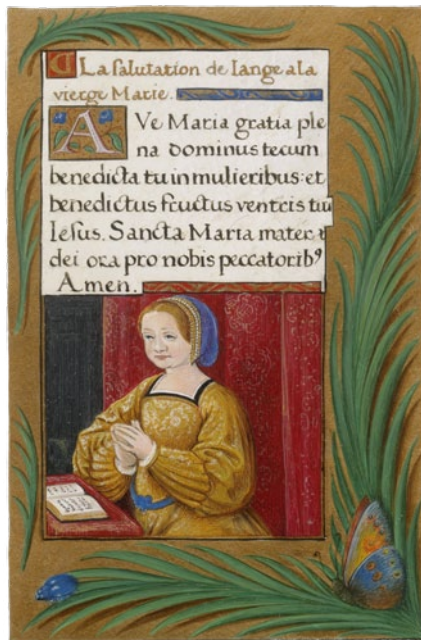 La salutation de lange a la
vierge Marie.
AVe Maria gratia ple
na dominus tecum
benedicta tu in mulieribus: et
benedictus fructus ventris tuū
Iesus. Sancta Maria mater
dei ora pro nobis peccatoribꝰ
Amen.